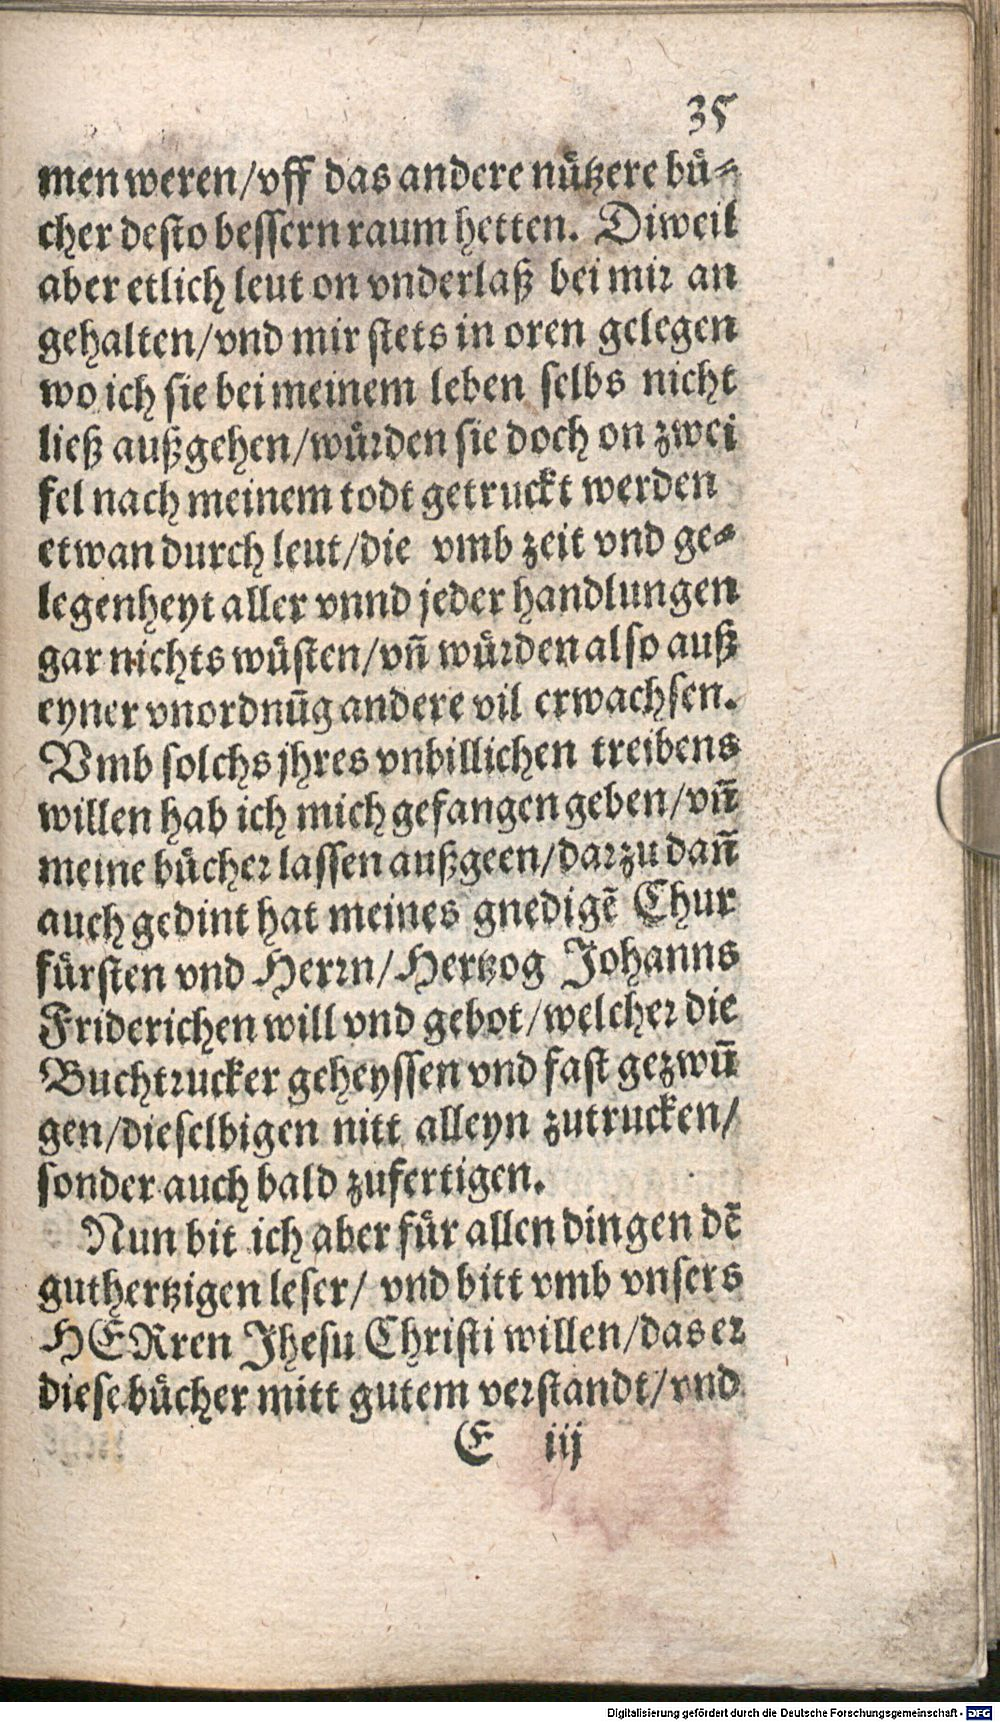 35
men weren/vff das andere nützere bü⸗
cher desto bessern raum hetten. Diweil
aber etlich leut on vnderlaß bei mir an
gehalten/vnd mir stets in oren gelegen
wo ich sie bei meinem leben selbs nicht
ließ außgehen/würden sie doch on zwei
fel nach meinem todt getruckt werden
etwan durch leut/die vmb zeit vnd ge⸗
legenheyt aller vnnd jeder handlungen
gar nichts wüsten/vn̄ würden also auß
eyner vnordnūg andere vil erwachsen.
Vmb solchs jhres vnbillichen treibens
willen hab ich mich gefangen geben/vn̄
meine bücher lassen außgeen/darzu dan̄
auch gedint hat meines gnedigē Chur
fürsten vnd Herrn/Hertzog Johanns
Friderichen will vnd gebot/welcher die
Buchtrucker geheyssen vnd fast gezwū
gen/dieselbigen nitt alleyn zutrucken/
sonder auch bald zufertigen.
Nun bit ich aber für allen dingen dē
guthertzigen leser/ vnd bitt vmb vnsers
HERren Jhesu Christi willen/das er
diese bücher mitt gutem verstandt/vnd
E iij
Digitalisierung gefördert durch die Deutsche Forschungsgemeinschaft - DFG